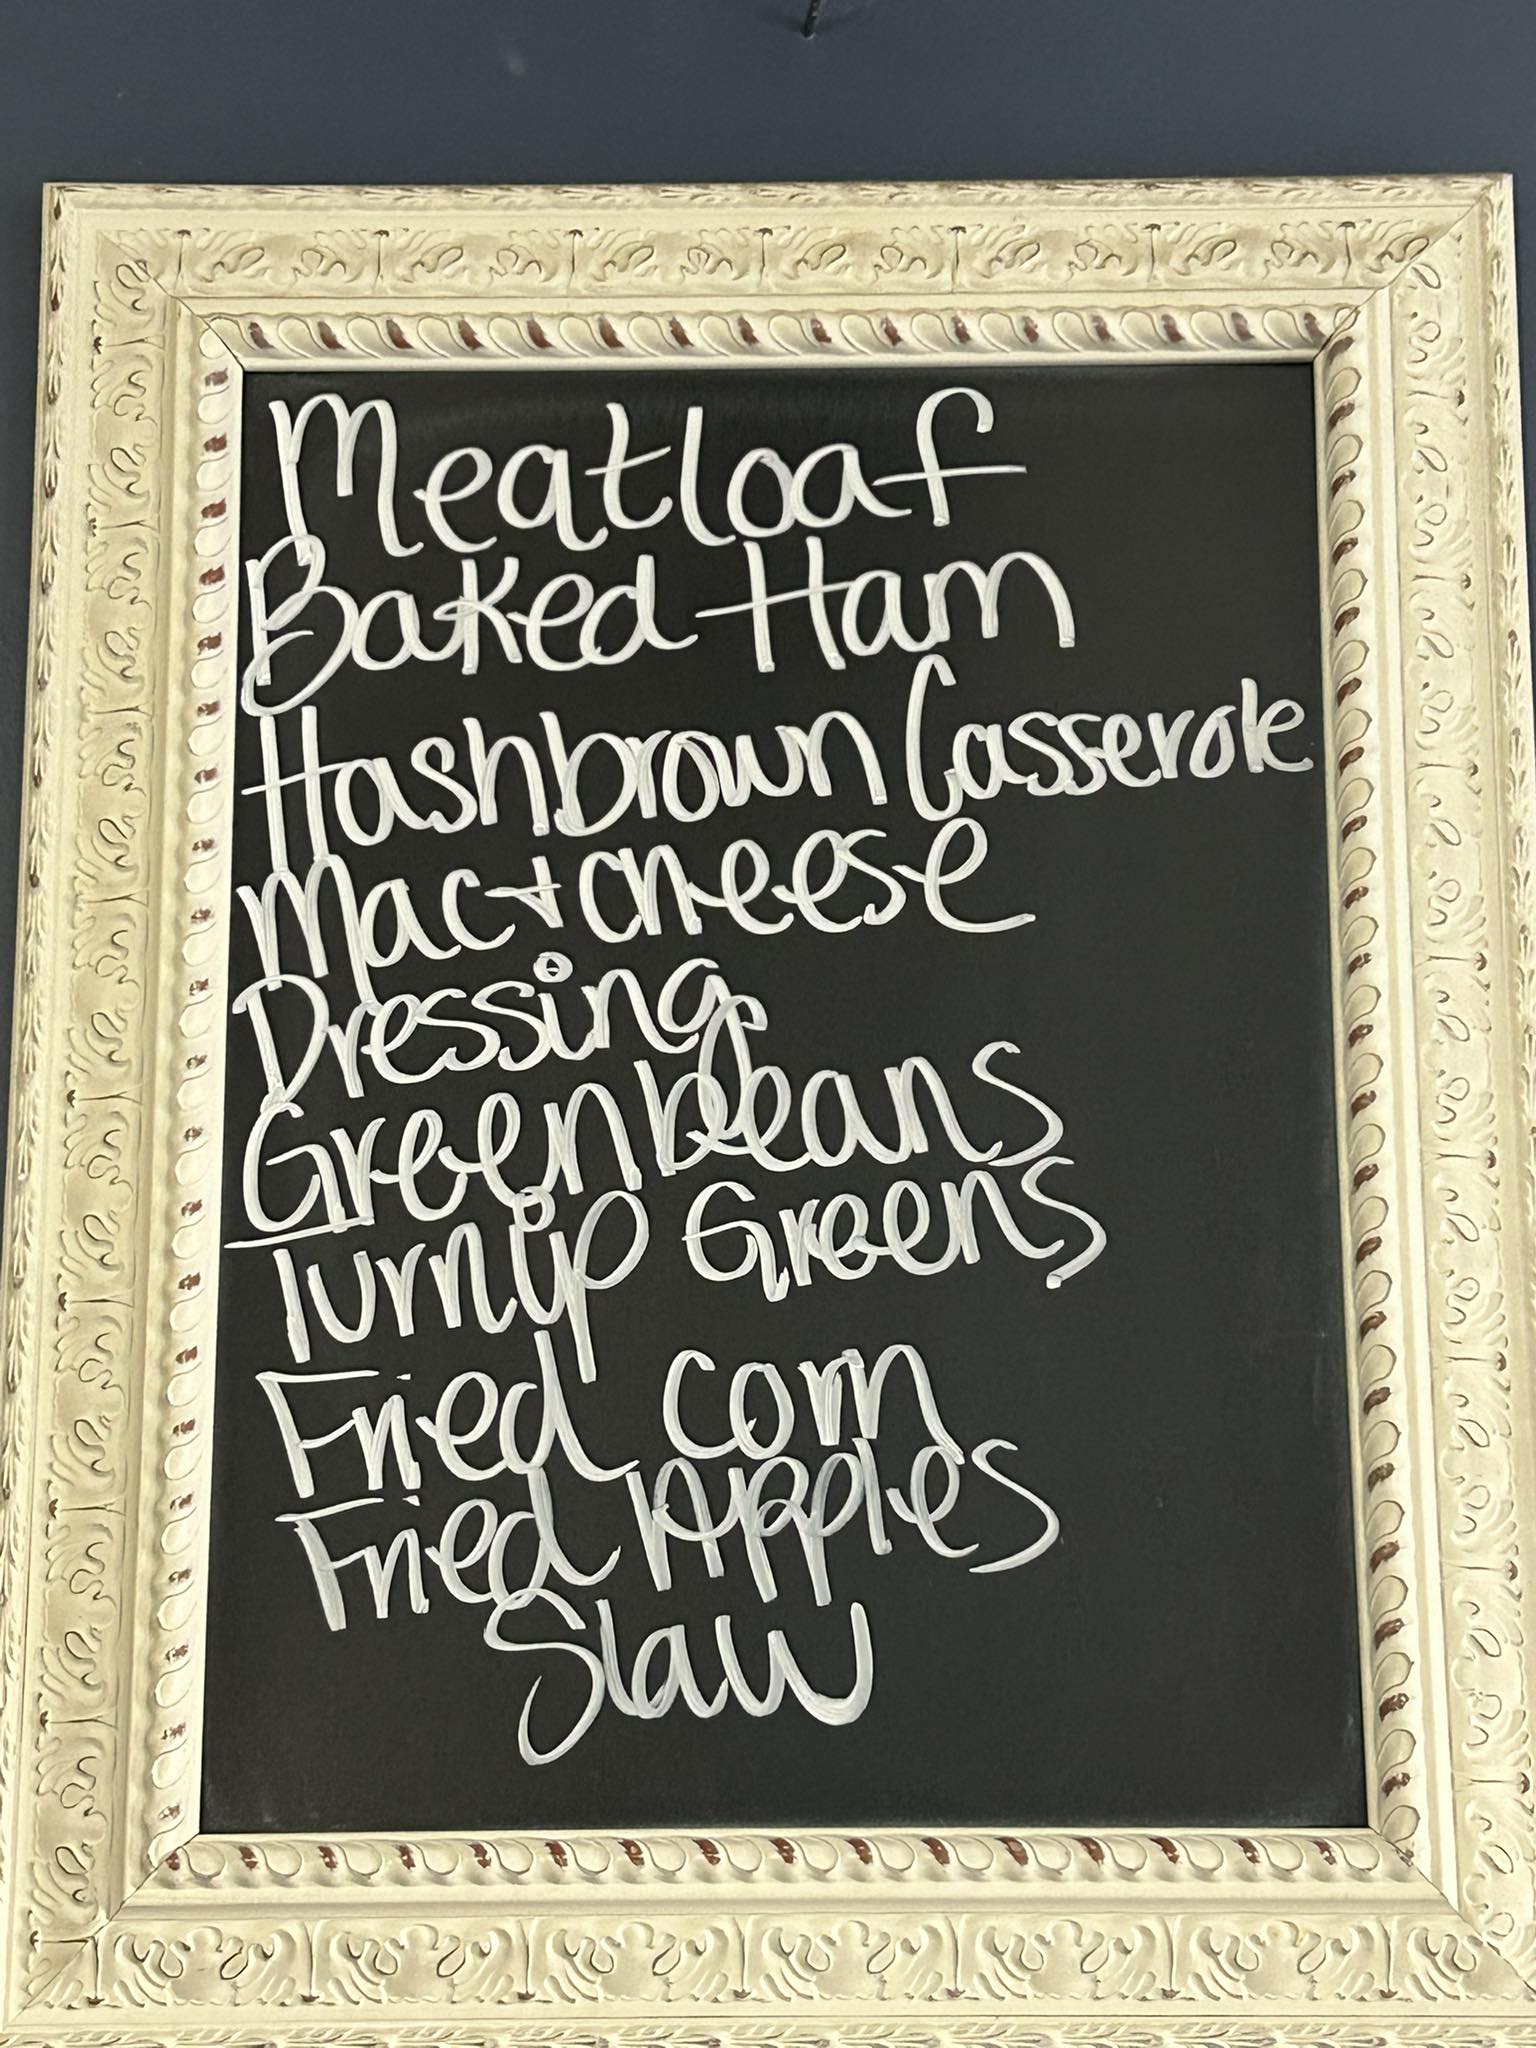 Meatloaf
Baked Ham
Hashbrown Casserole
Mac + cheese
Dressing
Green beans
Turnip Greens
Fried corn
Fried Apples
Slaw